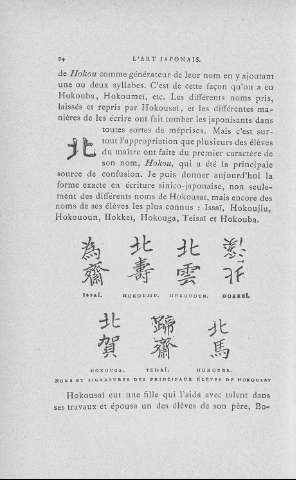 94 L'ART JAPONAIS.
de Hokou comme générateur de leur nom en y ajoutant
une ou deux syllabes. C'est de cette façon qu'on a eu
Hokouba, Hokoumei, etc. Les différents noms pris,
laissés et repris par Hokousaï, et les différentes ma-
nières de les écrire ont fait tomber les japonisants dans
toutes sortes de méprises. Mais c'est sur-
tout l'appropriation que plusieurs des élèves
北
du maître ont faite du premier caractère de
son nom, Hokou, qui a été la principale
source de confusion. Je puis donner aujourd'hui la
forme exacte en écriture sinico-japonaise, non seule-
ment des différents noms de Hokousaï, mais encore des
noms de ses élèves les plus connus : Issaï, Hokoujiu,
Hokououn, Hokkeï, Hokouga, Teisaï et Hokouba.
為齋 北壽 北雲 北
ISSAÏ. HOKOUJIU. HOKOUOUN. HOKKEÏ.
北賀 蹄齋 北馬
HOKOUGA. TEISAÏ. HOKOUBA.
NOMS ET SIGNATURES DES PRINCIPAUX ÉLÈVES DE HOKOUSAÏ
Hokousaï eut une fille qui l'aida avec talent dans
ses travaux et épousa un des élèves de son père, Bo-